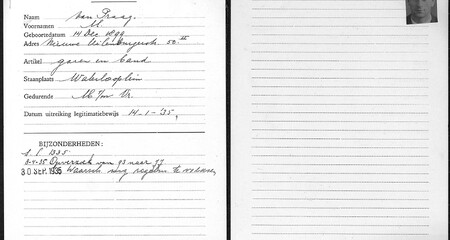 Naam van Praag.
Voornamen M.
Geboortedatum 14 Dec 1899
Adres Nieuwe Uilenburgerstr 50 III
Artikel garen en band
Staanplaats Waterlooplein
Gedurende M t/m Vr.
Datum uitreiking legitimatiebewijs 14-1-'35.
BIJZONDERHEDEN:
1935
Op verzoek van 93 naar 99
30 SEP. 1935 Waarsch. regelm. te